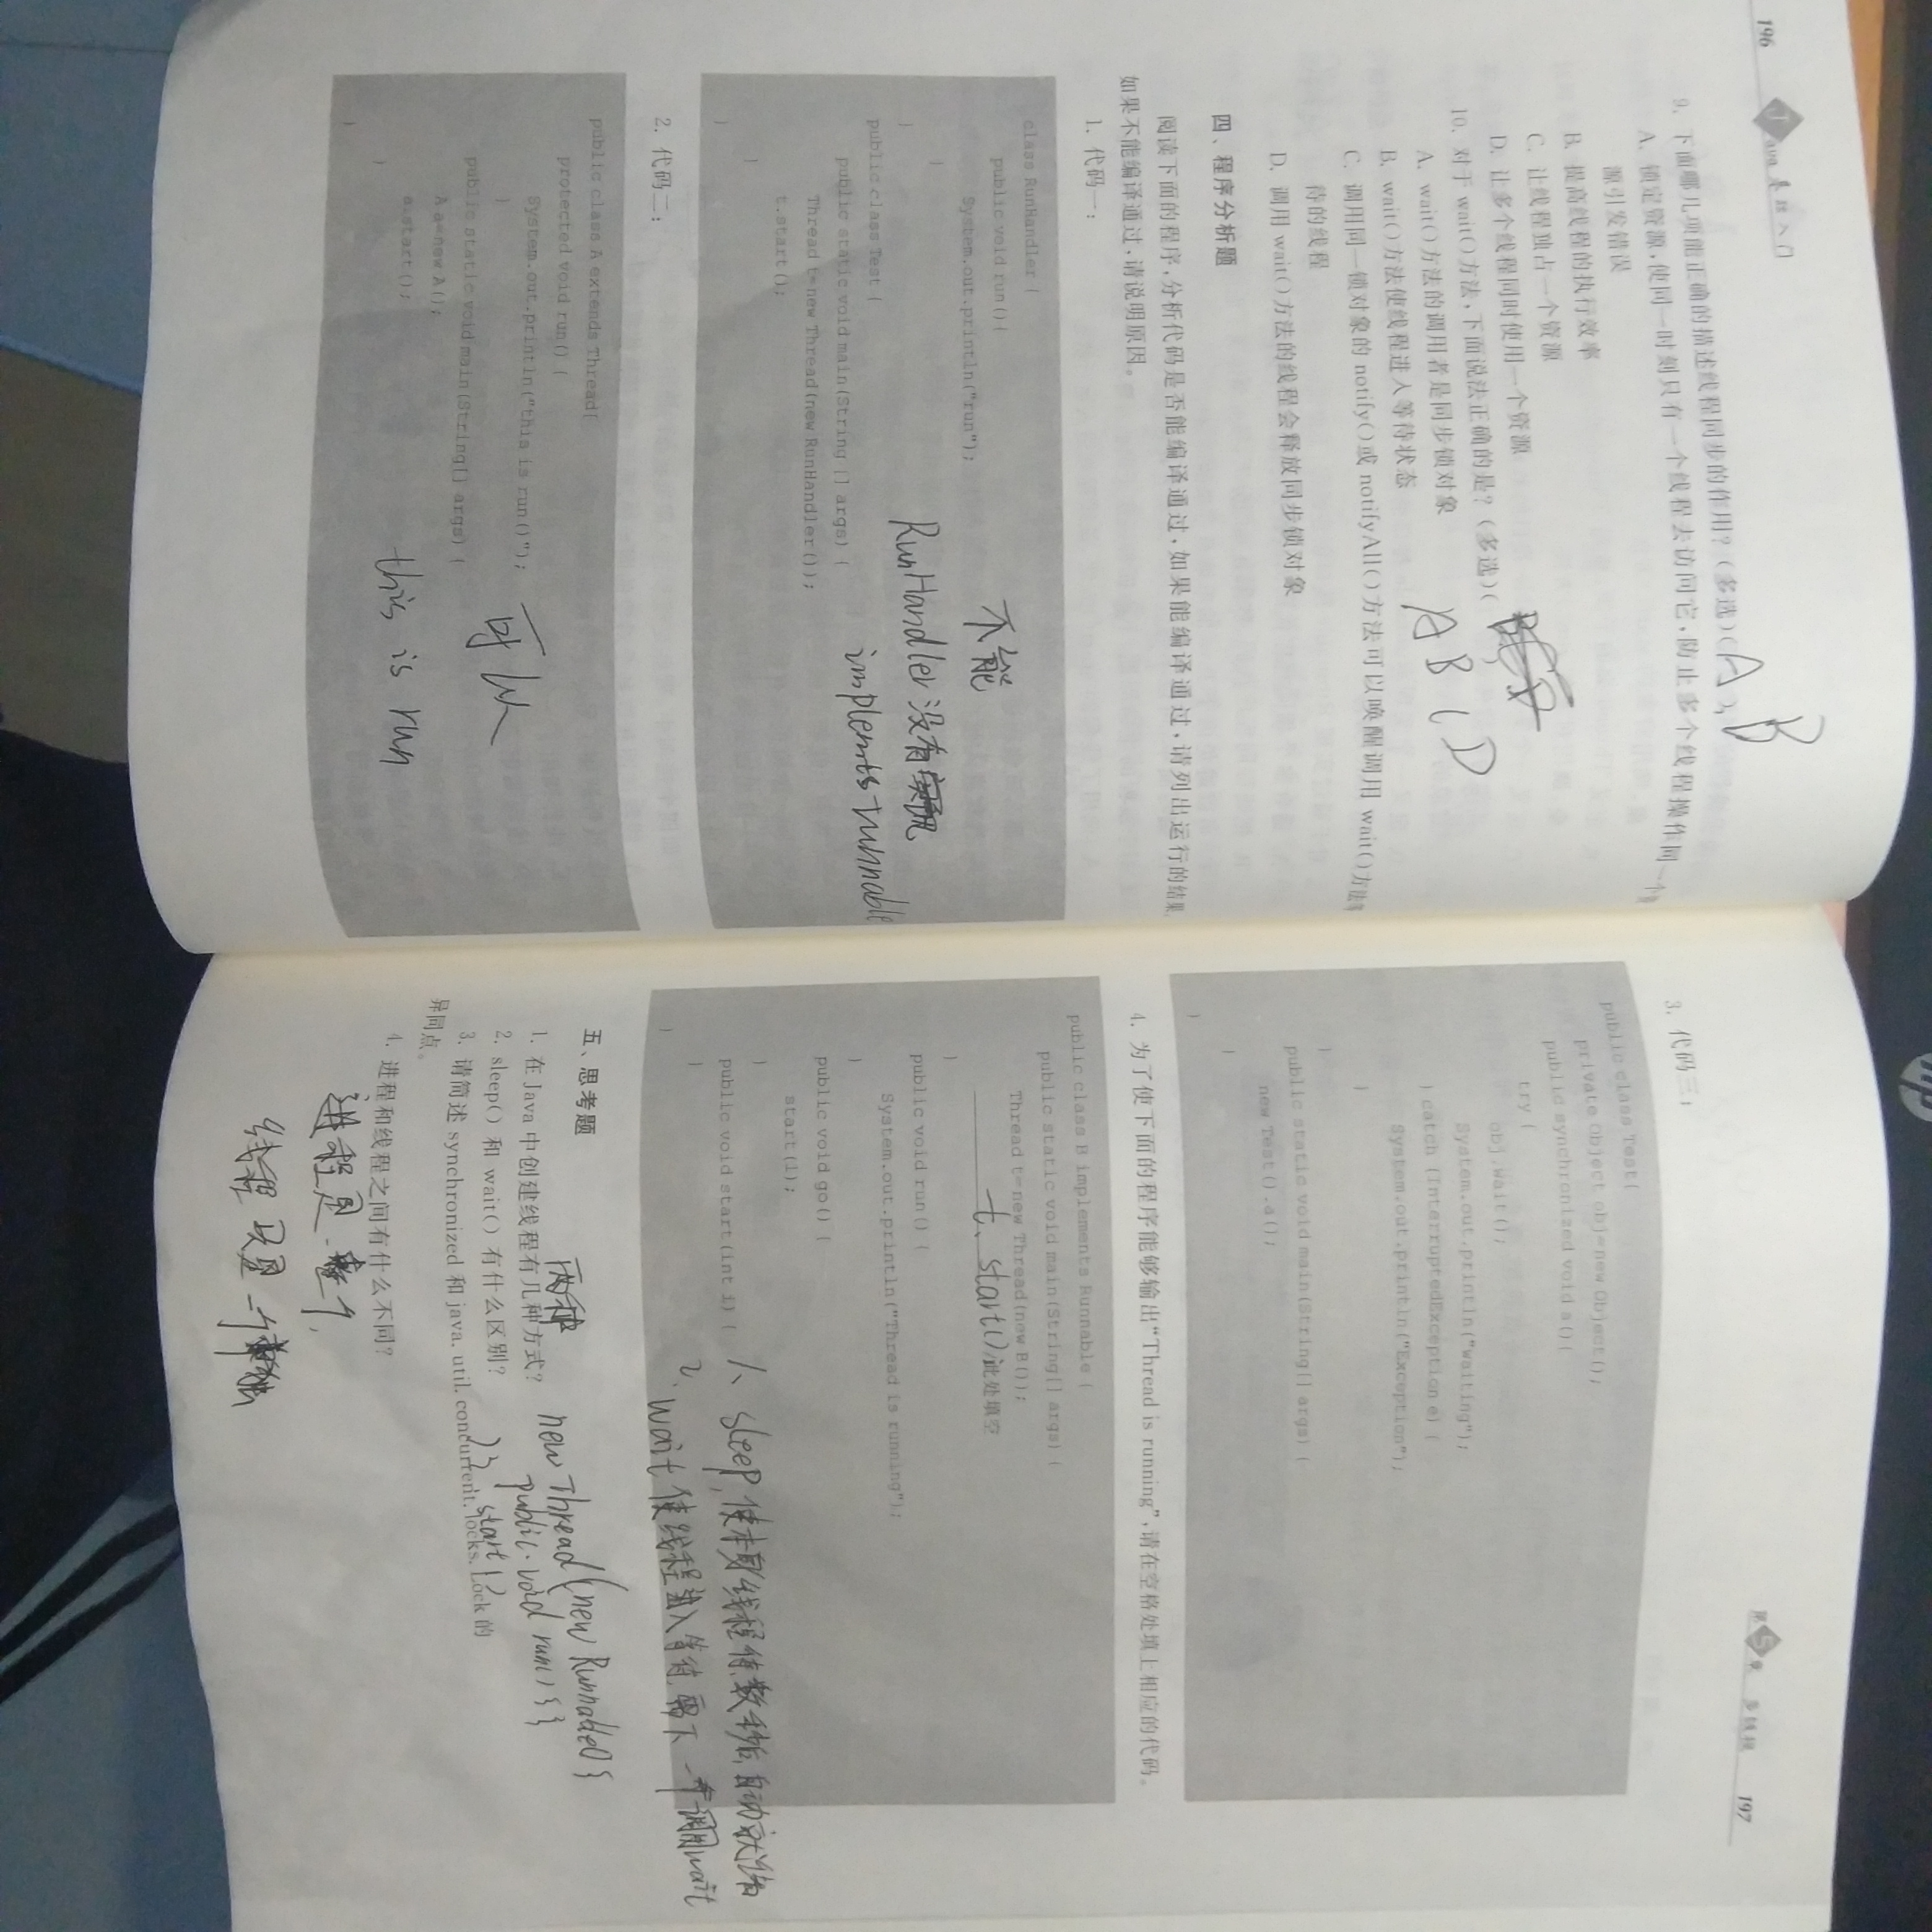 196
Java 基础入门
9. 下面哪几项能正确的描述线程同步的作用？(多选)(A、B
A. 锁定资源,使同一时刻只有一个线程去访问它,防止多个线程操作同一个
源引发错误
B. 提高线程的执行效率
C. 让线程独占一个资源
D. 让多个线程同时使用一个资源
10. 对于 wait()方法,下面说法正确的是？(多选)(
A B C D
A. wait()方法的调用者是同步锁对象
B. wait()方法使线程进入等待状态
C. 调用同一锁对象的 notify()或 notifyAll()方法可以唤醒调用 wait()方法
待的线程
D. 调用 wait()方法的线程会释放同步锁对象
四、程序分析题
阅读下面的程序,分析代码是否能编译通过,如果能编译通过,请列出运行的结果
如果不能编译通过,请说明原因。
1. 代码一：
class RunHandler {
public void run(){
System.out.println("run");
}
}
public class Test {
public static void main(String [] args) {
Thread t=new Thread(new RunHandler());
t.start();
}
}
不能
RunHandler 没有
implements runnable
2. 代码二：
public class A extends Thread{
protected void run() {
System.out.println("this is run()");
}
public static void main(String[] args) {
A a=new A();
a.start();
}
}
可以
this is run
第5章 多线程 197
3. 代码三：
public class Test{
private Object obj=new Object();
public synchronized void a(){
try {
obj.wait();
System.out.println("waiting");
} catch (InterruptedException e) {
System.out.println("Exception");
}
}
public static void main(String[] args) {
new Test().a();
}
}
4. 为了使下面的程序能够输出“Thread is running”,请在空格处填上相应的代码。
public class B implements Runnable {
public static void main(String[] args) {
Thread t=new Thread(new B());
t.start() //此处填空
}
public void run() {
System.out.println("Thread is running");
}
public void go() {
start(1);
}
public void start(int i) {
}
}
1、sleep,使本身线程停数秒后,自动就绪
2、wait 使线程进入等待,需下一个调用wait
五、思考题
1. 在 Java 中创建线程有几种方式？
两种
new Thread(new Runnable(){
public void run(){}
}).start()
2. sleep() 和 wait() 有什么区别？
3. 请简述 synchronized 和 java. util. concurrent. locks. Lock 的
异同点。
4. 进程和线程之间有什么不同？
进程是
线程只是一个
hp